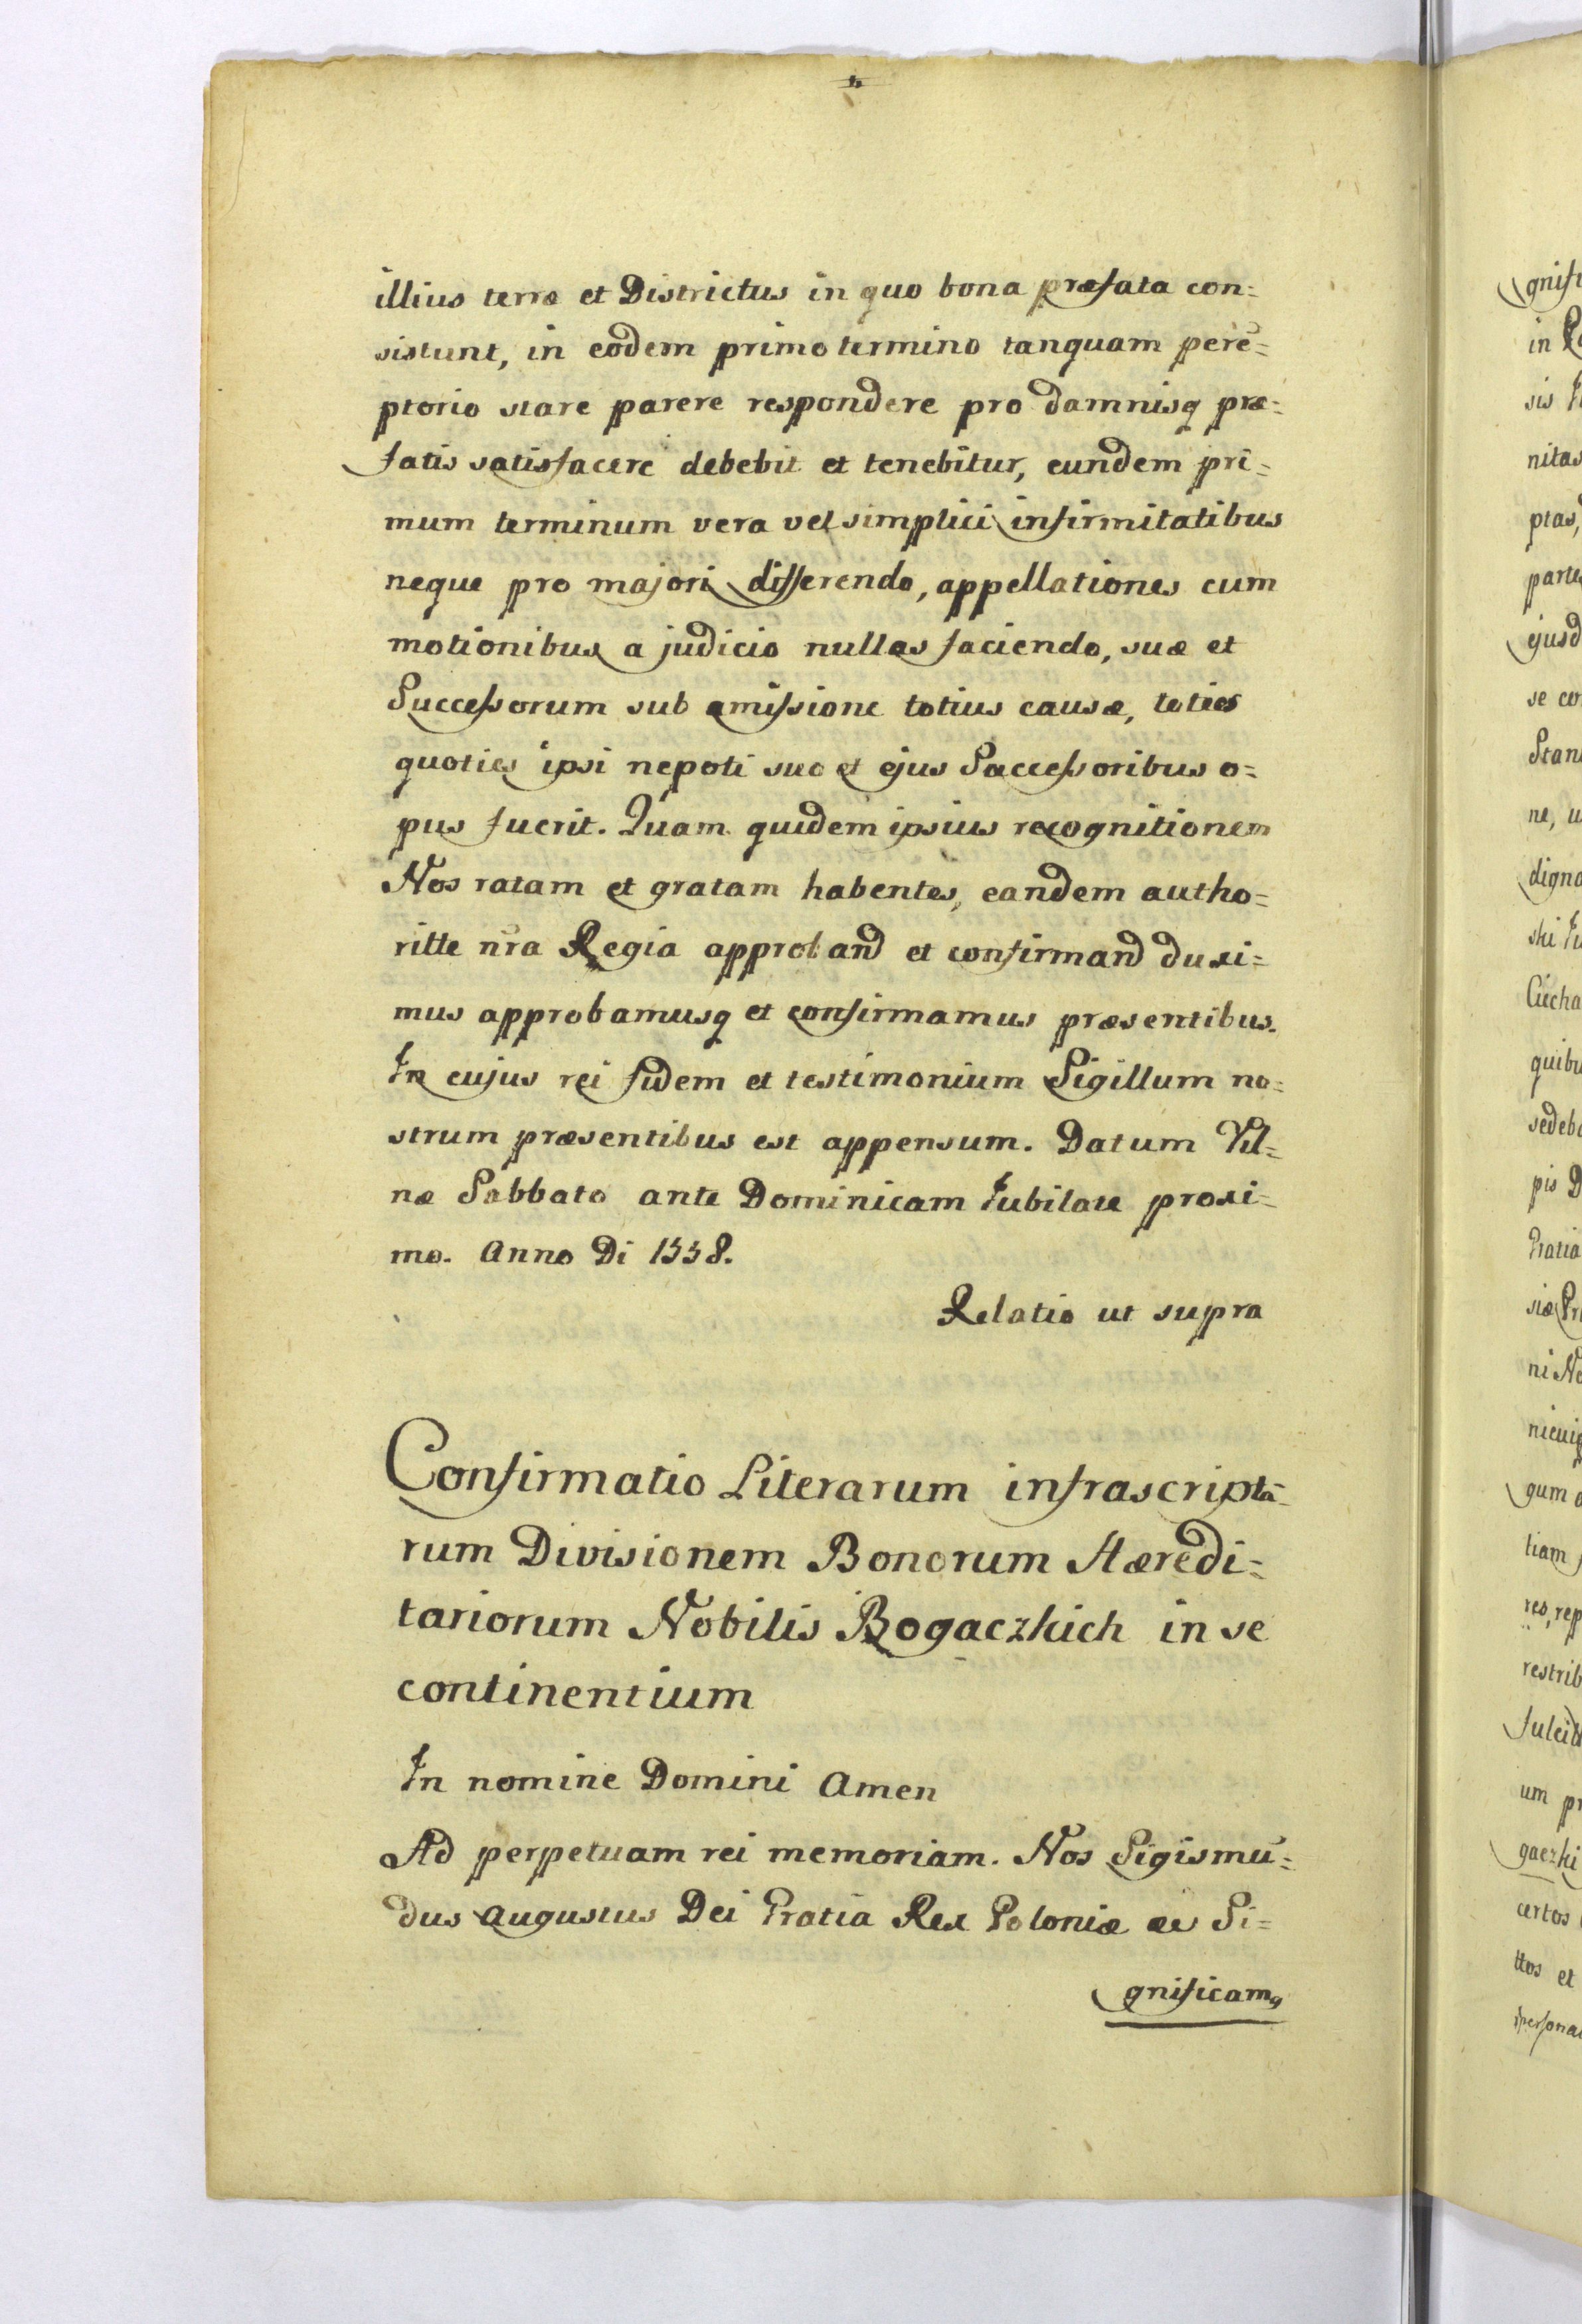 illius terræ et Districtus in quo bona præfata con=
sistunt, in eodem primo termino tanquam perē=
ptorio stare parere respondere pro damnisq præ=
fatis satisfacere debebit et tenebitur, eundem pri=
mum terminum vera vel simplici infirmitatibus
neque pro majori differendo, appellationes cum
motionibus a judicio nullas faciendo, suæ et
Successorum sub amissione totius causæ, toties
quoties ipsi nepoti suo et ejus Successoribus o=
pus fuerit. Quam quidem ipsius recognitionem
Nos ratam et gratam habentes, eandem autho=
ritte nr̄a Regia approband et confirmand duxi=
mus approbamusq et confirmamus præsentibus.
In cujus rei fidem et testimonium Sigillum no=
strum præsentibus est appensum. Datum Vil=
næ Sabbato ante Dominicam Jubilate proxi=
mo. Anno Di 1558.
Relatio ut supra
Confirmatio Literarum infrascriptā=
rum Divisionem Bonorum Hæredi=
tariorum Nobilis Bogaczkich in se
continentium
In nomine Domini Amen
Ad perpetuam rei memoriam. Nos Sigismū=
dus Augustus Dei Gratia Rex Poloniæ &c Si=
gnificamq
gnifi
in
sis
nitas
ptas,
parte
ejusd
se co
Stan
ne, u
digno
ski
Cucha
quibu
sedeb
pis D
Gratia
siæ Pr
ni No
nicuiq
gum
tiam
res, rep
restrib
fulcit
um pr
gaczki
certos
ttos et
personal